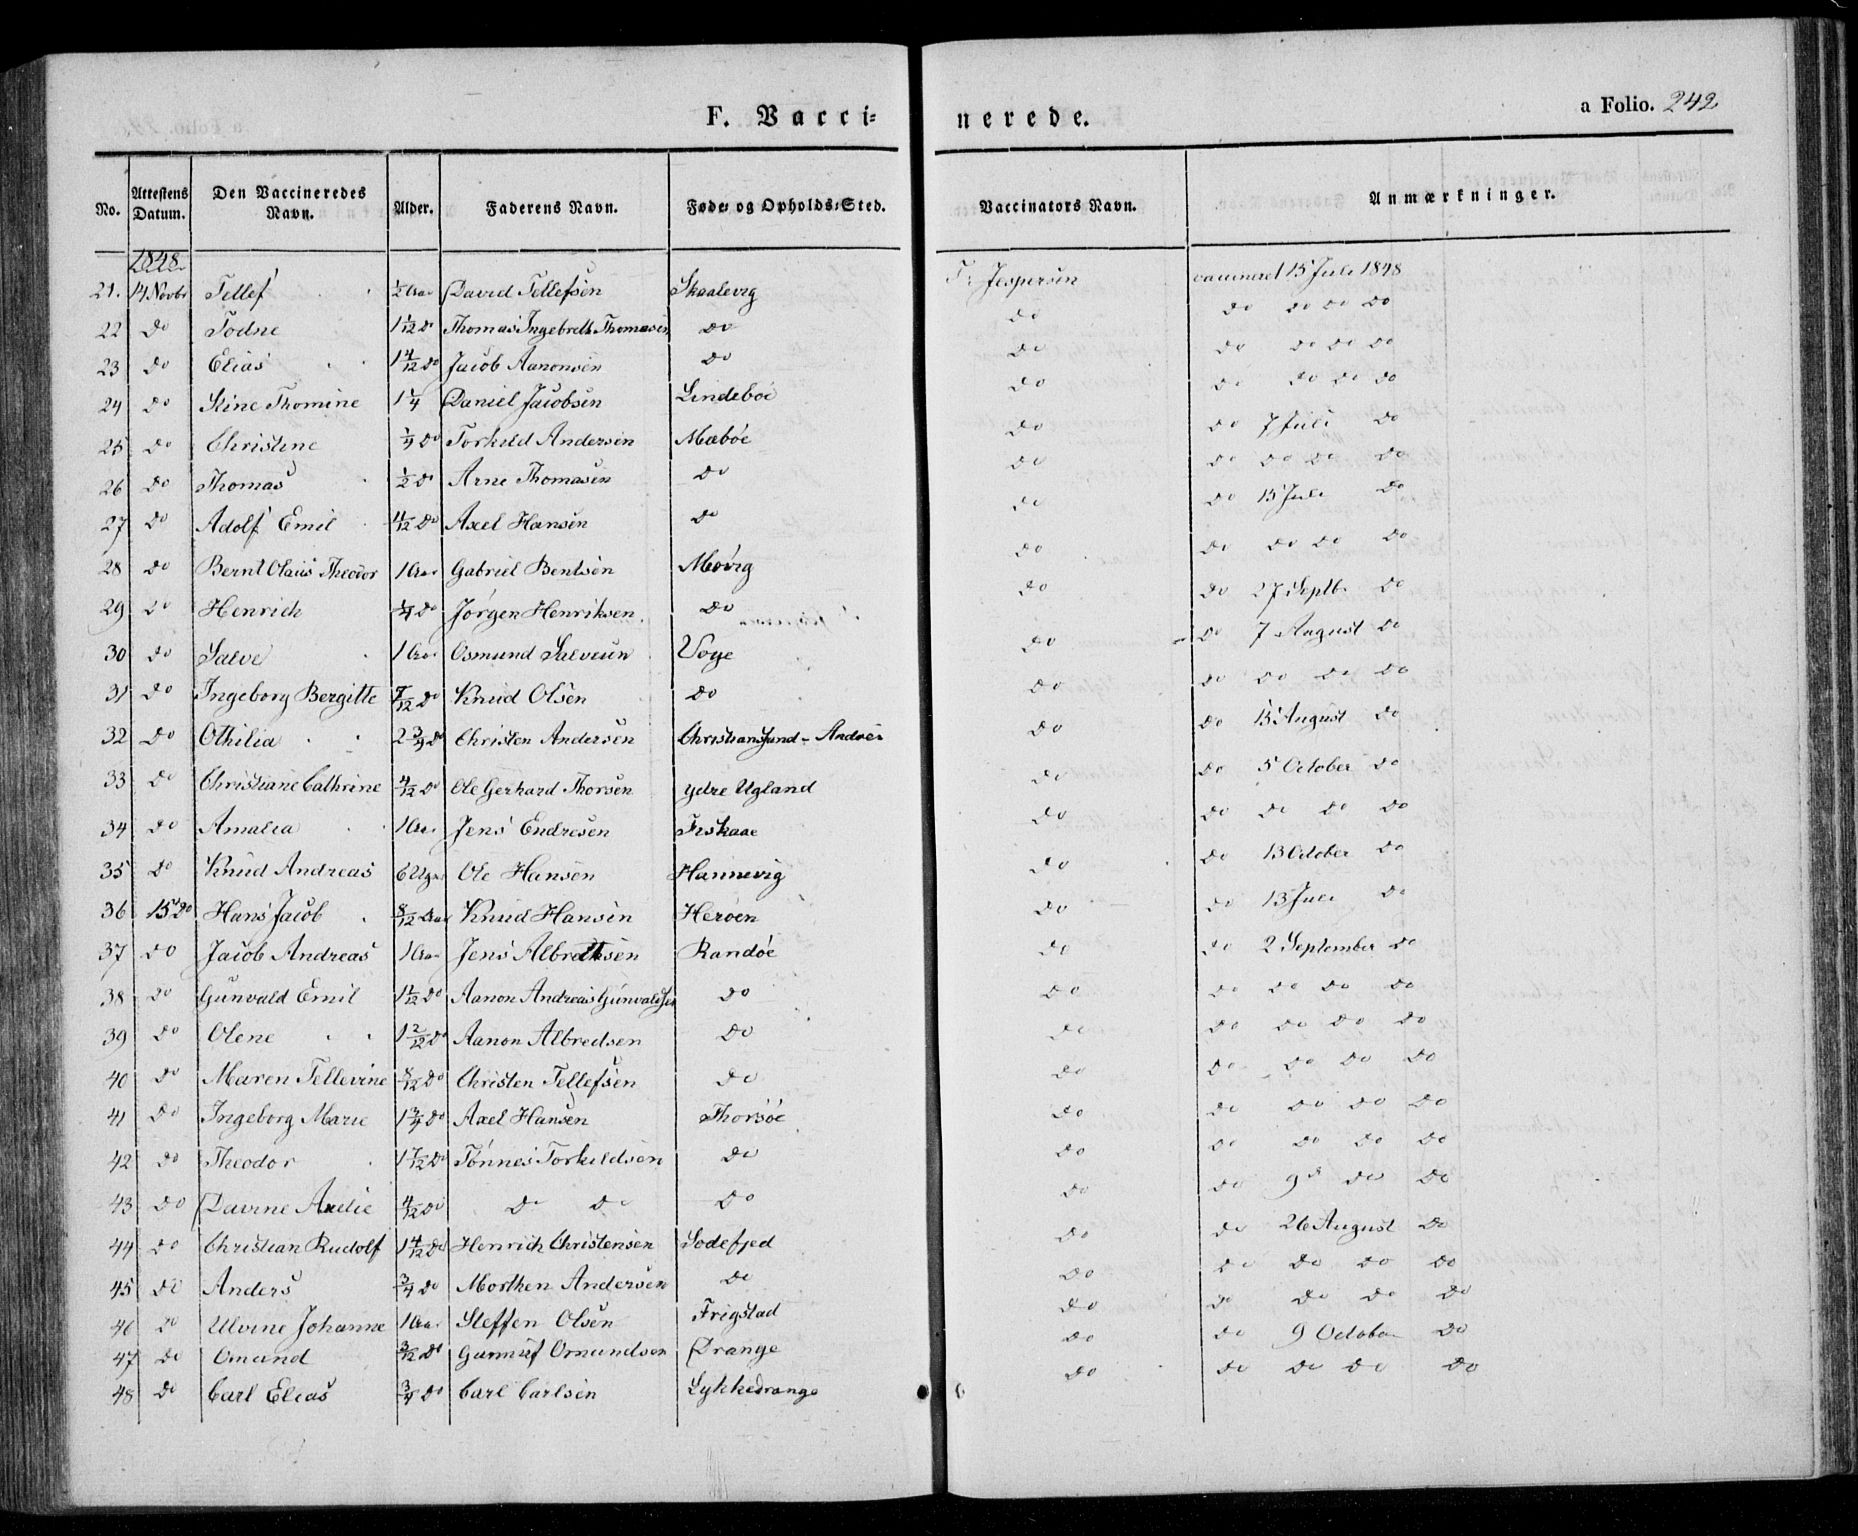 F. Vacci= nerede.
a Folio. 242
No. Attestens Datum. Den Vaccineredes Navn. Alder. Faderens Navn. Føde- og Opholds-Sted. Vaccinators Navn. Anmærkninger.
1848.
21. 14 Novbr Tellef ½ Aar David Tellefsen Skaalevig F. Jespersen vaccineret 15 Juli 1848
22 Do Todne 1 1/12 Do Thomas Ingebreth Thomasen Do Do Do Do Do Do
23 Do Elias 1 4/12 Do Jacob Aanonsen Do Do Do Do Do Do
24 Do Stine Thomine 1 ¼ Daniel Jacobsen Lindeboe Do Do Do Do Do
25 Do Christine ¼ Do Torkild Andersen Mæbøe Do Do 7 Juli Do
26 Do Thomas ½ Do Arne Thomasen Do Do Do Do Do Do
27 Do Adolf Emil 11/12 Do Axel Hansen Do Do Do 15 Juli Do
28 Do Bernt Olaus Theodor 1 Aar Gabriel Bentsen Møvig Do Do Do Do Do
29 Do Henrich ¼ Do Jørgen Henriksen Do Do Do 27 Septb. Do
30 Do Salve 1 Aar Osmund Salvesen Voge Do Do 7 August Do
31 Do Ingeborg Bergitte 7/12 Do Knud Olsen Do Do Do Do Do Do
32 Do Othilia 2 ¾ Do Christen Andersen Christiansund - Andøen Do Do 15 August Do
33 Do Christiane Cathrine 4/12 Do Ole Gerhard Thorsen ydre Ugland Do Do 5 October Do
34 Do Amalia 1 Aar Jens Endresen Friskaae Do Do Do Do Do
35 Do Knud Andreas 6 Uger Ole Hansen Hannevig Do Do 13 October Do
36 15 Do Hans Jacob 8/12 Aar Knud Hansen Herøen Do Do 13 Juli Do
37 Do Jacob Andreas 1 Aar Jens Albretsen Randøe Do Do 2 September Do
38 Do Gunvald Emil 1 1/12 Do Aanon Andreas Gunvaldsen Do Do Do Do Do Do
39 Do Olene 1 2/12 Do Aanon Albredsen Do Do Do Do Do Do
40 Do Maren Tellevine 8/12 Do Christen Tellefsen Do Do Do Do Do Do
41 Do Ingeborg Marie 1 ¾ Do Axel Hansen Thorsøe Do Do Do Do Do
42 Do Theodor 1 7/12 Do Tønnes Torkildsen Do Do Do Do Do Do
43 Do Davine Axelie 4/12 Do Do Do Do Do Do 9d Do Do
44 Do Christian Rudolf 1 4/12 Do Henrich Christensen Sodefjed Do Do 26 August Do
45 Do Anders ¾ Do Morthen Andersen Do Do Do Do Do Do
46 Do Ulvine Johanne 1 Aar Steffen Olsen Frigstad Do Do Do Do Do
47 Do Omund 3/12 Do Gunnuf Omundsen Drange Do Do 9 October Do
48 Do Carl Elias ¾ Do Carl Carlsen Lykkedrange Do Do Do Do Do